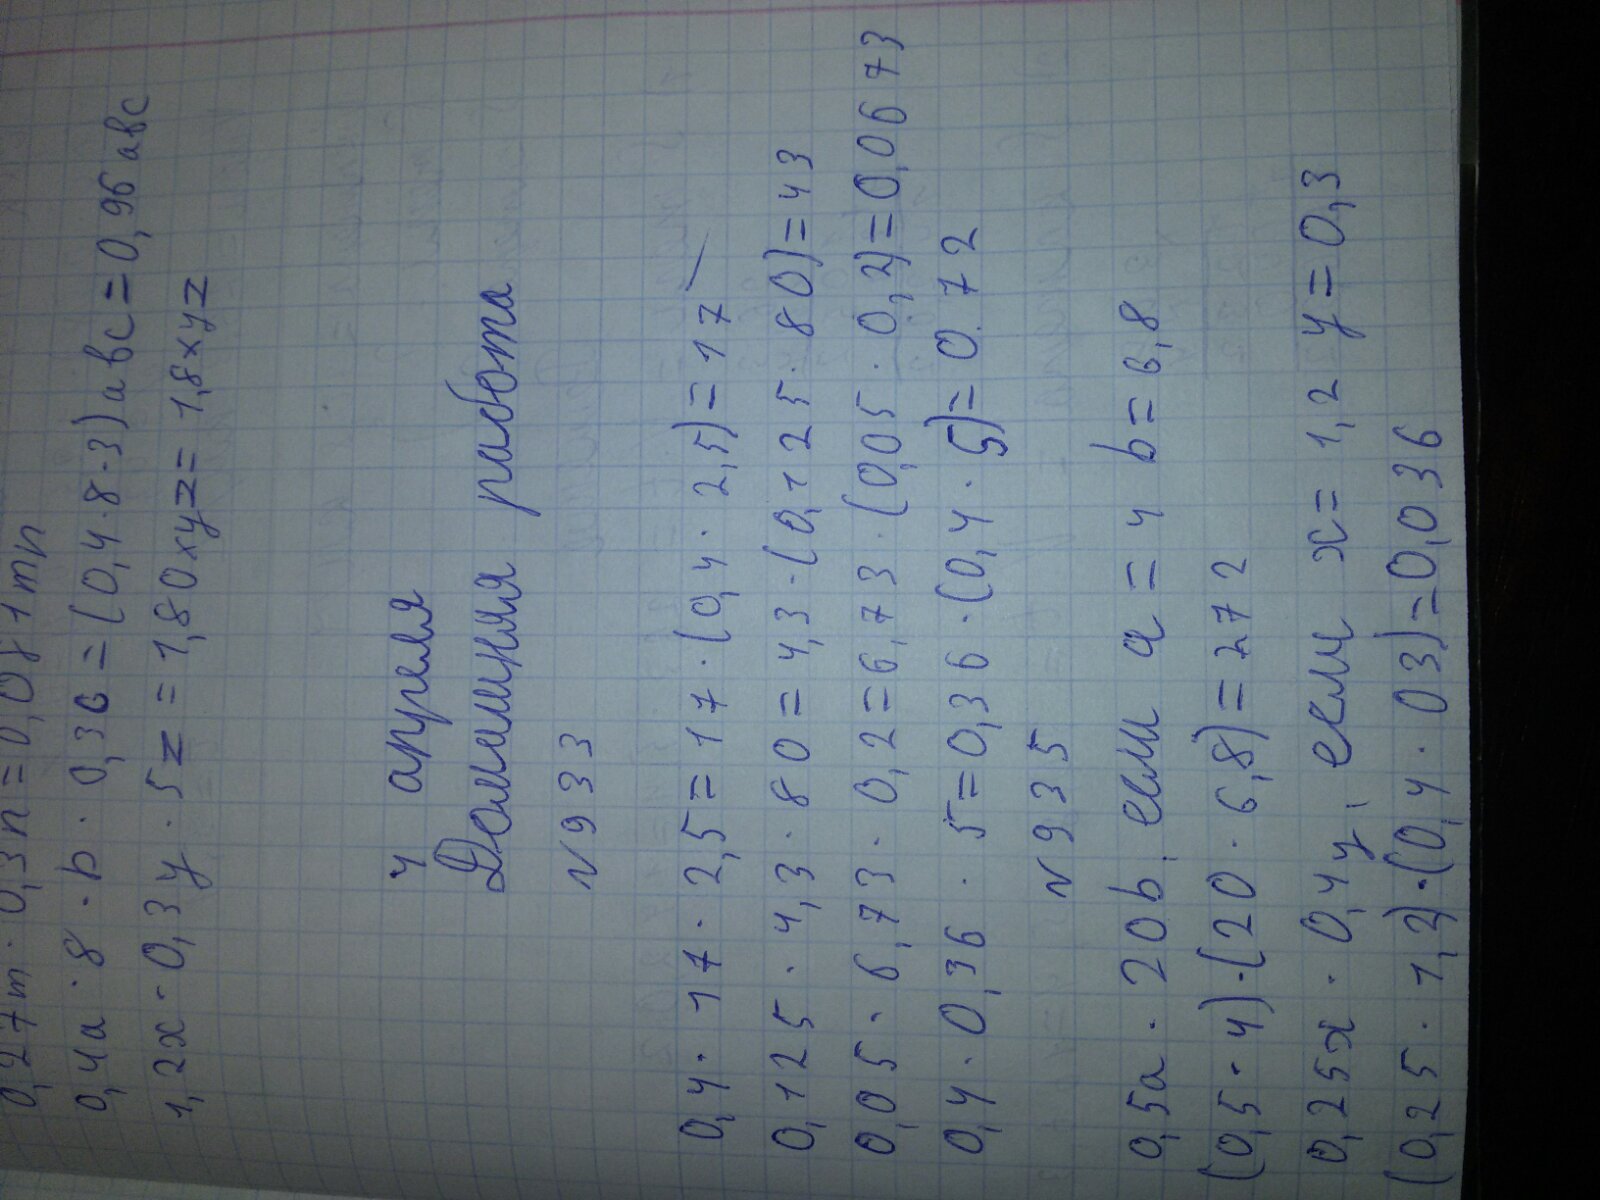 0,27m · 0,3n = 0,081mn
0,4a · 8 · b · 0,3c = (0,4 · 8 · 3) abc = 0,96 abc
1,2x · 0,3y · 5z = 1,80xyz = 1,8xyz
4 апреля
Домашняя работа
N 933
0,4 · 17 · 2,5 = 17 · (0,4 · 2,5) = 17
0,125 · 4,3 · 80 = 4,3 · (0,125 · 80) = 43
0,05 · 6,73 · 0,2 = 6,73 · (0,05 · 0,2) = 0,0673
0,4 · 0,36 · 5 = 0,36 · (0,4 · 5) = 0.72
N 935
0,5a · 20b, если a = 4 b = 6,8
(0,5 · 4) · (20 · 6,8) = 272
0,25x · 0,4y, если x = 1,2 y = 0,3
(0,25 · 1,2) · (0,4 · 03) = 0,036